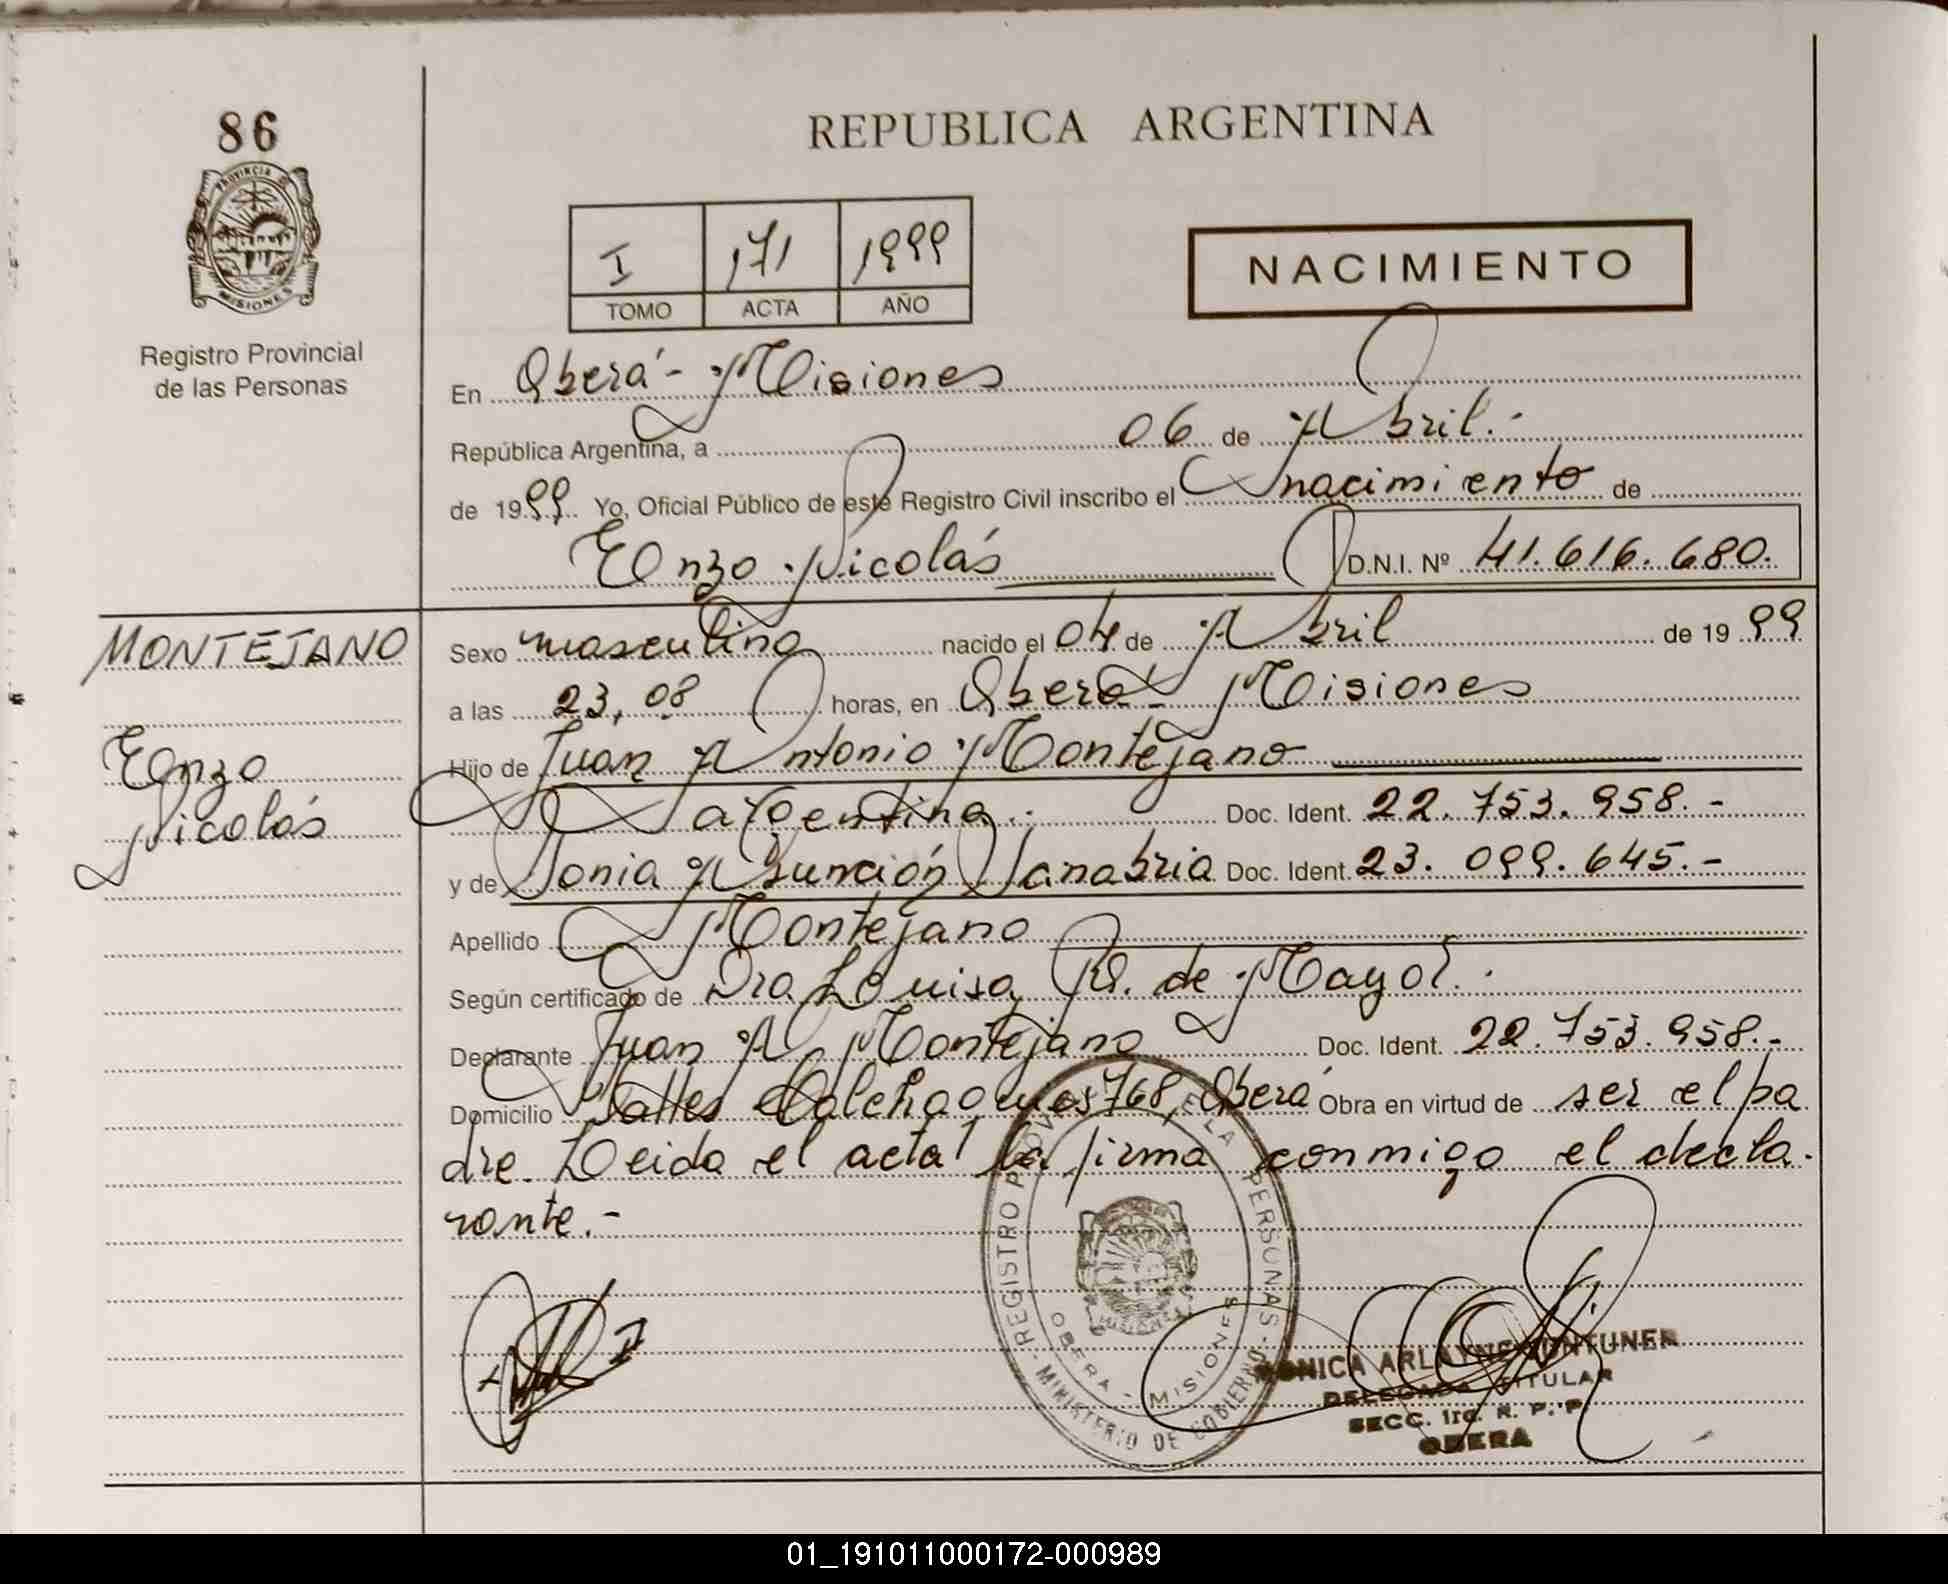 86
REPUBLICA ARGENTINA
PROVINCIA DE
MISIONES
I 171 1999
TOMO ACTA AÑO
NACIMIENTO
Registro Provincial
de las Personas
En Oberá - Misiones
República Argentina, a 06 de Abril.-
de 1999. Yo, Oficial Público de este Registro Civil inscribo el nacimiento de
Enzo Nicolás D.N.I. Nº 41.616.680.
MONTEJANO
Enzo
Nicolás
Sexo masculino nacido el 04 de Abril de 1999
a las 23,08 horas, en Oberá - Misiones
Hijo de Juan Antonio Montejano
argentina.- Doc. Ident. 22.753.958.-
y de Sonia Asunción Sanabria Doc. Ident. 23.099.645.-
Apellido Montejano
Según certificado de Dra. Luisa R. de Mayol.
Declarante Juan A. Montejano Doc. Ident. 22.753.958.-
Domicilio Valles Calchaquies 768, Oberá Obra en virtud de ser el pa
dre. Leida el acta la firma conmigo el decla.
rante.-
REGISTRO PROVINCIAL DE LAS PERSONAS - MINISTERIO DE GOBIERNO
OBERA - MISIONES
MISIONES
MONICA ARLAYNE
DELEGADA TITULAR
SECC. 1ra. R. P. P.
OBERA
01_191011000172-000989